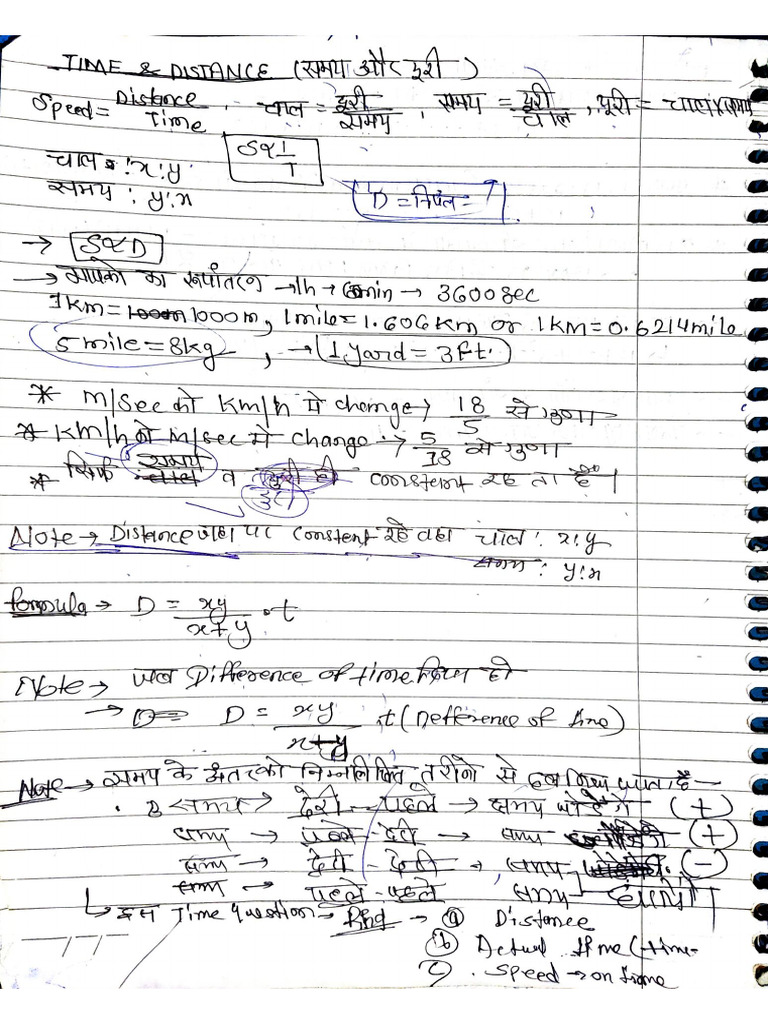 TIME & DISTANCE (समय और दूरी)
Speed = Distance / Time, चाल = दूरी / समय, समय = दूरी / चाल, दूरी = चाल x समय
चाल : x:y
समय : y:x
S∝1/T
D = नियत =
→ S∝D
→ मापको का रूपांतरण → 1h → 60min → 3600sec
1km = 1000m, 1mile = 1.606km or 1km = 0.6214mile
5 mile = 8kg, → 1 yard = 3ft.
* m/sec को km/h मे change → 18/5 से गुणा
* km/h को m/sec मे change → 5/18 से गुणा
* सिर्फ समय व दूरी ही constent रहता है।
Note → Distance जहा पर constent रहे वहा चाल : x:y
समय : y:x
formula → D = xy / x+y . t
Note → जब Difference of time दिया हो
→ D = xy / x+y t (Defference of time)
Note → समय के अंतर को निम्नलिखित तरीको से हल किया जाता है –
समय → देरी - पहले → समय जोड़ेगे (+)
समय → पहले - देरी → समय (+)
समय → देरी - देरी → समय (-)
समय → पहले - पहले समय घटायेगे
इस Time question → Find → (a) Distance
(b) Actual time (-time-
(c) . speed → on time